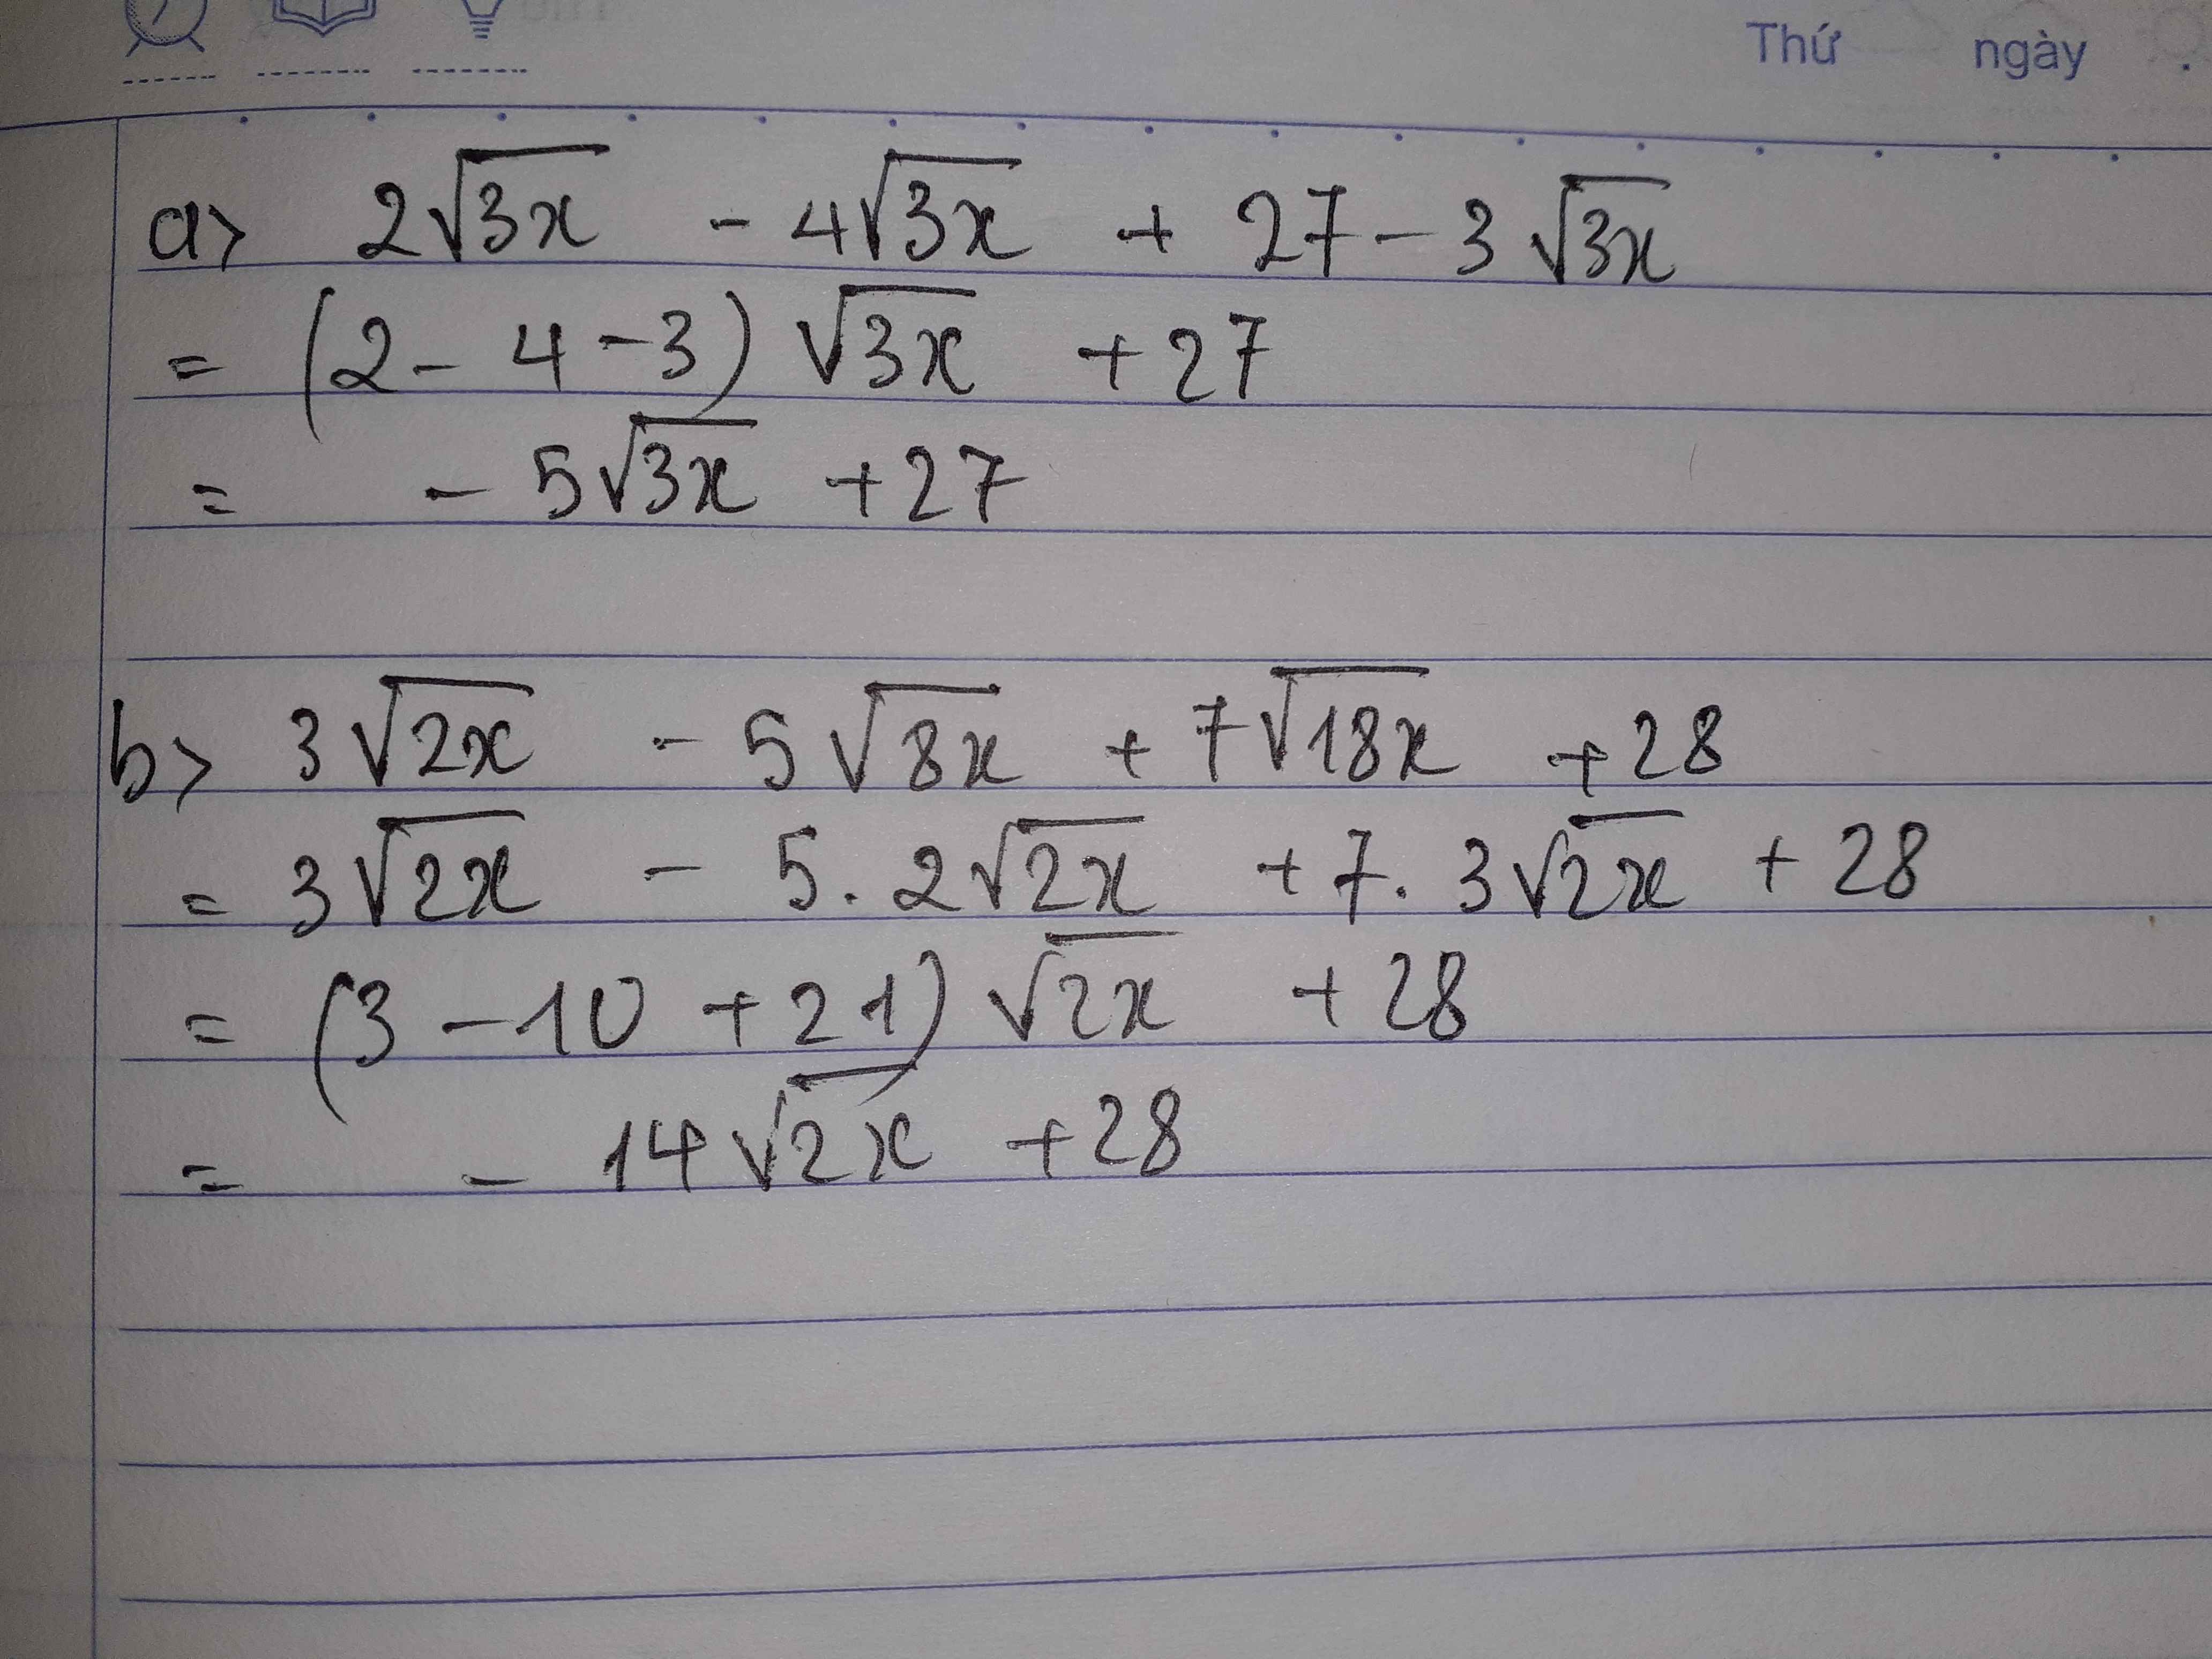 Thứ ngày .
a> 2√3x - 4√3x + 27 - 3√3x
= (2 - 4 - 3) √3x + 27
= - 5√3x + 27
b> 3√2x - 5√8x + 7√18x + 28
= 3√2x - 5.2√2x + 7.3√2x + 28
= (3 - 10 + 21) √2x + 28
= - 14√2x + 28